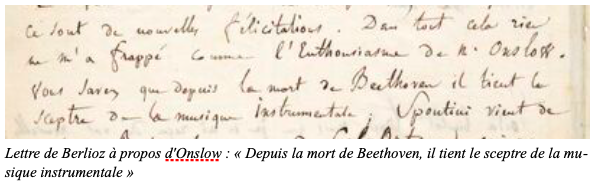 ce sont de nouvelles félicitations. Dans tout cela rien
ne m'a frappé comme l'Enthousiasme de Mr Onslow.
Vous savez que depuis la mort de Beethoven il tient le
sceptre de la musique instrumentale, Spontini vient de
Lettre de Berlioz à propos d'Onslow : « Depuis la mort de Beethoven, il tient le sceptre de la mu-
sique instrumentale »